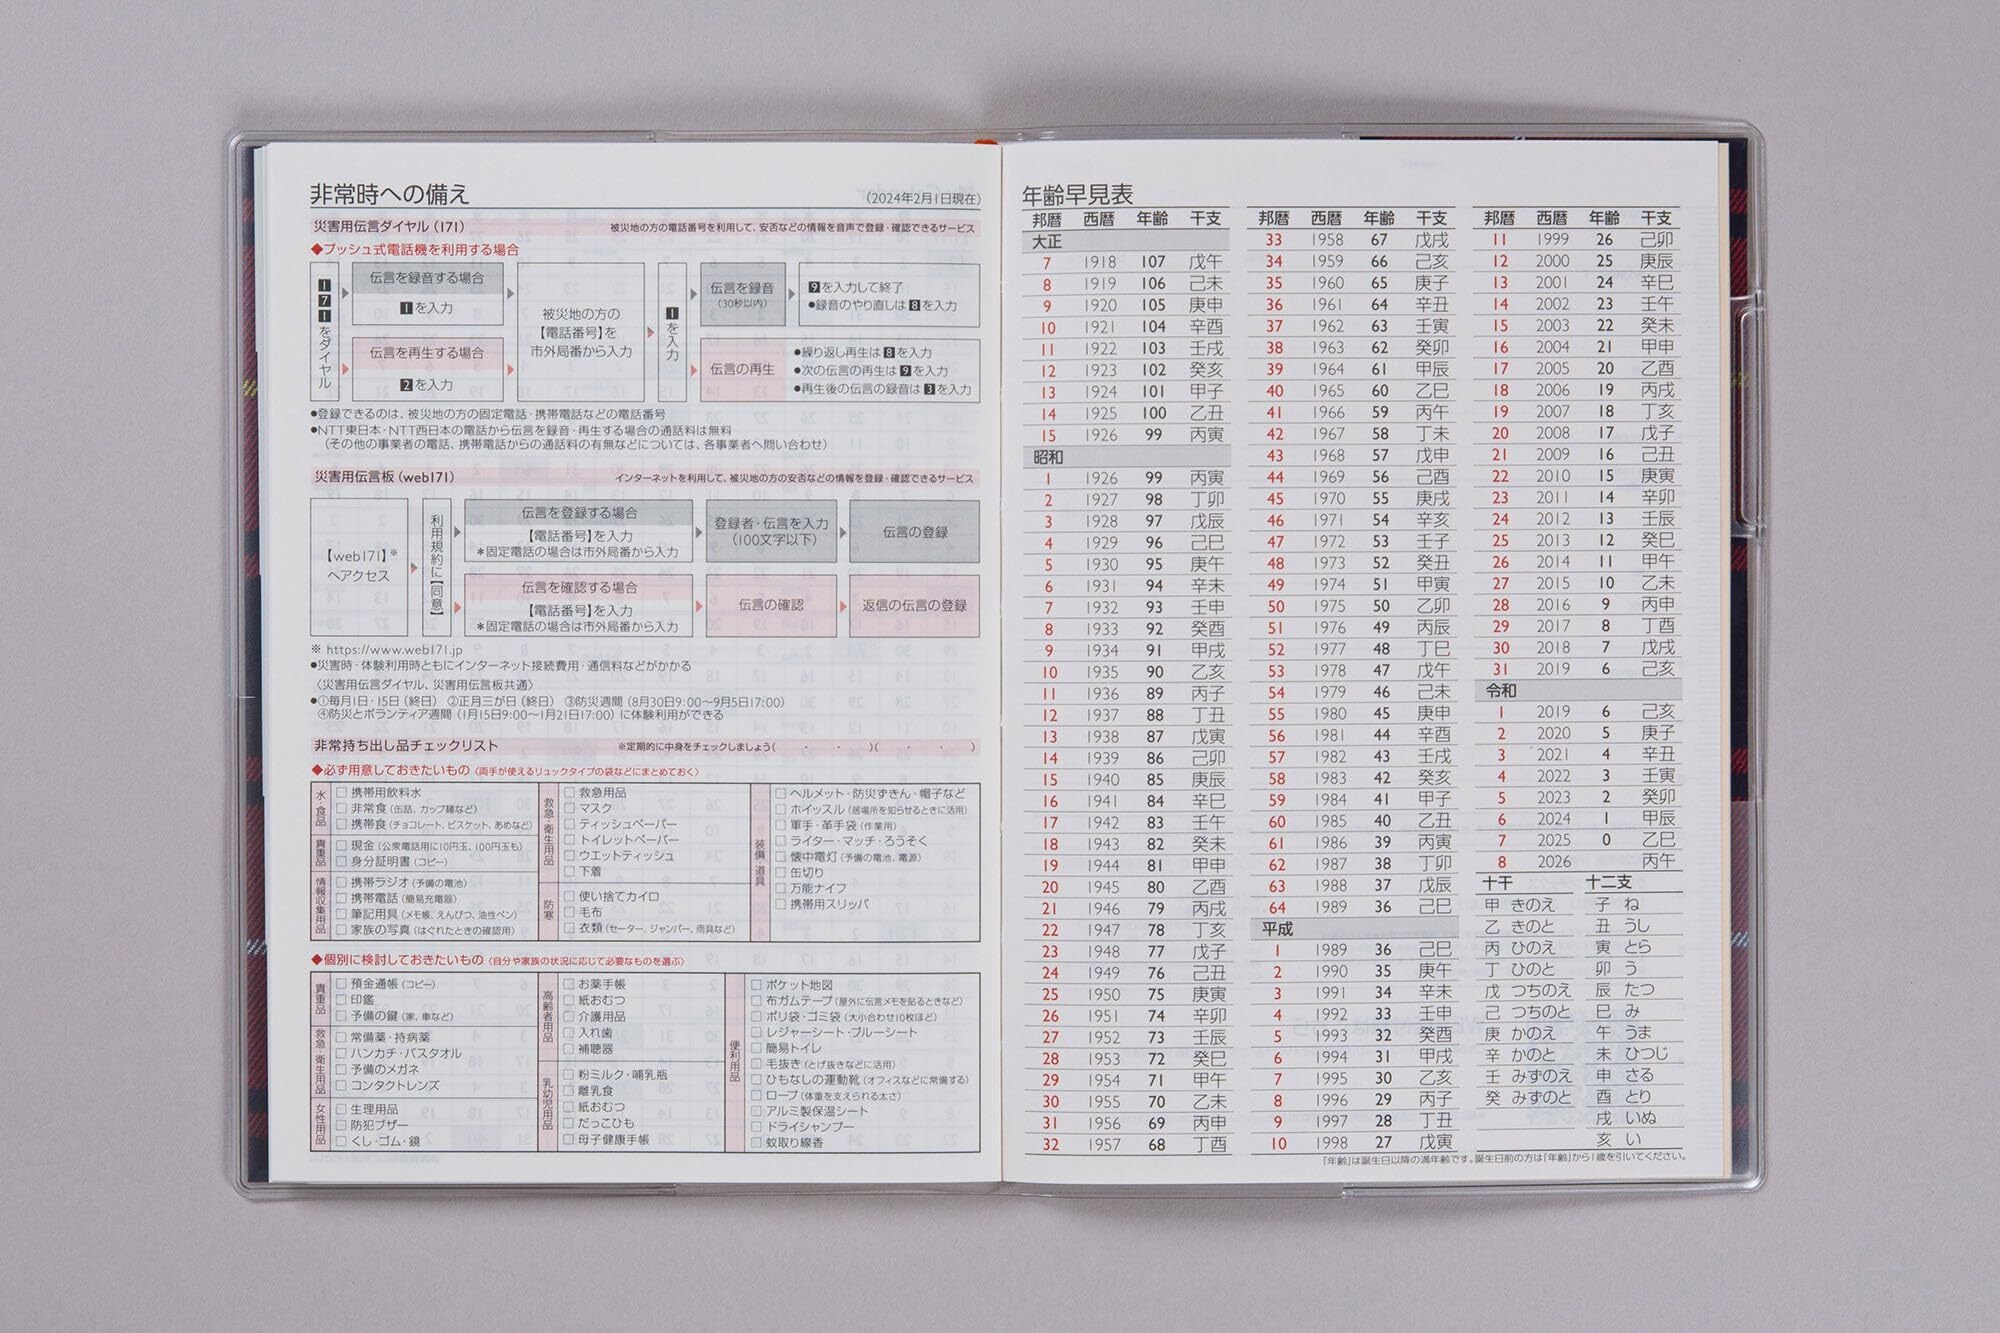 非常時への備え
(2024年2月1日現在)
災害用伝言ダイヤル(171)
被災地の方の電話番号を利用して、安否などの情報を音声で登録・確認できるサービス
◆プッシュ式電話機を利用する場合
171をダイヤル
伝言を録音する場合
1を入力
伝言を再生する場合
2を入力
被災地の方の
【電話番号】を
市外局番から入力
1を入力
伝言を録音
(30秒以内)
9を入力して終了
●録音のやり直しは8を入力
伝言の再生
●繰り返し再生は8を入力
●次の伝言の再生は9を入力
●再生後の伝言の録音は3を入力
●登録できるのは、被災地の方の固定電話・携帯電話などの電話番号
●NTT東日本・NTT西日本の電話から伝言を録音・再生する場合の通話料は無料
(その他の事業者の電話、携帯電話からの通話料の有無などについては、各事業者へ問い合わせ)
災害用伝言板(web171)
インターネットを利用して、被災地の方の安否などの情報を登録・確認できるサービス
【web171】※
へアクセス
利用規約に【同意】
伝言を登録する場合
【電話番号】を入力
＊固定電話の場合は市外局番から入力
登録者・伝言を入力
(100文字以下)
伝言の登録
伝言を確認する場合
【電話番号】を入力
＊固定電話の場合は市外局番から入力
伝言の確認
返信の伝言の登録
※ https://www.web171.jp
●災害時・体験利用時ともにインターネット接続費用・通信料などがかかる
〈災害用伝言ダイヤル、災害用伝言板共通〉
●①毎月1日・15日(終日) ②正月三が日(終日) ③防災週間(8月30日9:00〜9月5日17:00)
④防災とボランティア週間(1月15日9:00〜1月21日17:00)に体験利用ができる
非常持ち出し品チェックリスト
※定期的に中身をチェックしましょう( ・ ・ )( ・ ・ )
◆必ず用意しておきたいもの〈両手が使えるリュックタイプの袋などにまとめておく〉
水・食品
□携帯用飲料水
□非常食(缶詰、カップ麺など)
□携帯食(チョコレート、ビスケット、あめなど)
貴重品
□現金(公衆電話用に10円玉、100円玉も)
□身分証明書(コピー)
情報収集用品
□携帯ラジオ(予備の電池)
□携帯電話(簡易充電器)
□筆記用具(メモ帳、えんぴつ、油性ペン)
□家族の写真(はぐれたときの確認用)
救急・衛生用品
□救急用品
□マスク
□ティッシュペーパー
□トイレットペーパー
□ウエットティッシュ
□下着
防寒
□使い捨てカイロ
□毛布
□衣類(セーター、ジャンパー、雨具など)
装備・道具
□ヘルメット・防災ずきん・帽子など
□ホイッスル(居場所を知らせるときに活用)
□軍手・革手袋(作業用)
□ライター・マッチ・ろうそく
□懐中電灯(予備の電池、電源)
□缶切り
□万能ナイフ
□携帯用スリッパ
◆個別に検討しておきたいもの〈自分や家族の状況に応じて必要なものを選ぶ〉
貴重品
□預金通帳(コピー)
□印鑑
□予備の鍵(家、車など)
救急・衛生用品
□常備薬・持病薬
□ハンカチ・バスタオル
□予備のメガネ
□コンタクトレンズ
女性用品
□生理用品
□防犯ブザー
□くし・ゴム・鏡
高齢者用品
□お薬手帳
□紙おむつ
□介護用品
□入れ歯
□補聴器
乳幼児用品
□粉ミルク・哺乳瓶
□離乳食
□紙おむつ
□だっこひも
□母子健康手帳
便利用品
□ポケット地図
□布ガムテープ(屋外に伝言メモを貼るときなど)
□ポリ袋・ゴミ袋(大小合わせ10枚ほど)
□レジャーシート・ブルーシート
□簡易トイレ
□毛抜き(とげ抜きなどに活用)
□ひもなしの運動靴(オフィスなどに常備する)
□ロープ(体重を支えられる太さ)
□アルミ製保温シート
□ドライシャンプー
□蚊取り線香
年齢早見表
邦暦 西暦 年齢 干支
大正
7 1918 107 戊午
8 1919 106 己未
9 1920 105 庚申
10 1921 104 辛酉
11 1922 103 壬戌
12 1923 102 癸亥
13 1924 101 甲子
14 1925 100 乙丑
15 1926 99 丙寅
昭和
1 1926 99 丙寅
2 1927 98 丁卯
3 1928 97 戊辰
4 1929 96 己巳
5 1930 95 庚午
6 1931 94 辛未
7 1932 93 壬申
8 1933 92 癸酉
9 1934 91 甲戌
10 1935 90 乙亥
11 1936 89 丙子
12 1937 88 丁丑
13 1938 87 戊寅
14 1939 86 己卯
15 1940 85 庚辰
16 1941 84 辛巳
17 1942 83 壬午
18 1943 82 癸未
19 1944 81 甲申
20 1945 80 乙酉
21 1946 79 丙戌
22 1947 78 丁亥
23 1948 77 戊子
24 1949 76 己丑
25 1950 75 庚寅
26 1951 74 辛卯
27 1952 73 壬辰
28 1953 72 癸巳
29 1954 71 甲午
30 1955 70 乙未
31 1956 69 丙申
32 1957 68 丁酉
邦暦 西暦 年齢 干支
33 1958 67 戊戌
34 1959 66 己亥
35 1960 65 庚子
36 1961 64 辛丑
37 1962 63 壬寅
38 1963 62 癸卯
39 1964 61 甲辰
40 1965 60 乙巳
41 1966 59 丙午
42 1967 58 丁未
43 1968 57 戊申
44 1969 56 己酉
45 1970 55 庚戌
46 1971 54 辛亥
47 1972 53 壬子
48 1973 52 癸丑
49 1974 51 甲寅
50 1975 50 乙卯
51 1976 49 丙辰
52 1977 48 丁巳
53 1978 47 戊午
54 1979 46 己未
55 1980 45 庚申
56 1981 44 辛酉
57 1982 43 壬戌
58 1983 42 癸亥
59 1984 41 甲子
60 1985 40 乙丑
61 1986 39 丙寅
62 1987 38 丁卯
63 1988 37 戊辰
64 1989 36 己巳
平成
1 1989 36 己巳
2 1990 35 庚午
3 1991 34 辛未
4 1992 33 壬申
5 1993 32 癸酉
6 1994 31 甲戌
7 1995 30 乙亥
8 1996 29 丙子
9 1997 28 丁丑
10 1998 27 戊寅
邦暦 西暦 年齢 干支
11 1999 26 己卯
12 2000 25 庚辰
13 2001 24 辛巳
14 2002 23 壬午
15 2003 22 癸未
16 2004 21 甲申
17 2005 20 乙酉
18 2006 19 丙戌
19 2007 18 丁亥
20 2008 17 戊子
21 2009 16 己丑
22 2010 15 庚寅
23 2011 14 辛卯
24 2012 13 壬辰
25 2013 12 癸巳
26 2014 11 甲午
27 2015 10 乙未
28 2016 9 丙申
29 2017 8 丁酉
30 2018 7 戊戌
31 2019 6 己亥
令和
1 2019 6 己亥
2 2020 5 庚子
3 2021 4 辛丑
4 2022 3 壬寅
5 2023 2 癸卯
6 2024 1 甲辰
7 2025 0 乙巳
8 2026 丙午
十干 十二支
甲 きのえ 子 ね
乙 きのと 丑 うし
丙 ひのえ 寅 とら
丁 ひのと 卯 う
戊 つちのえ 辰 たつ
己 つちのと 巳 み
庚 かのえ 午 うま
辛 かのと 未 ひつじ
壬 みずのえ 申 さる
癸 みずのと 酉 とり
戌 いぬ
亥 い
「年齢」は誕生日以降の満年齢です。誕生日前の方は「年齢」から1歳を引いてください。